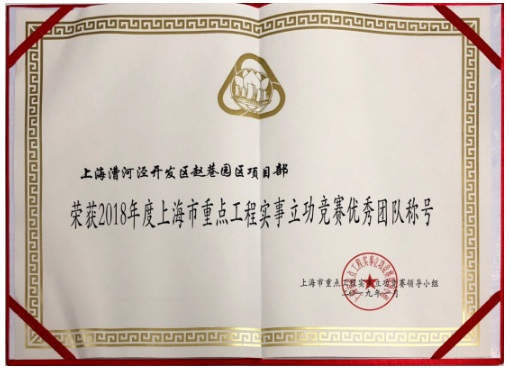 上海漕河泾开发区赵巷园区项目部
荣获2018年度上海市重点工程实事立功竞赛优秀团队称号
上海市重点工程实事立功竞赛领导小组
二〇一九年一月